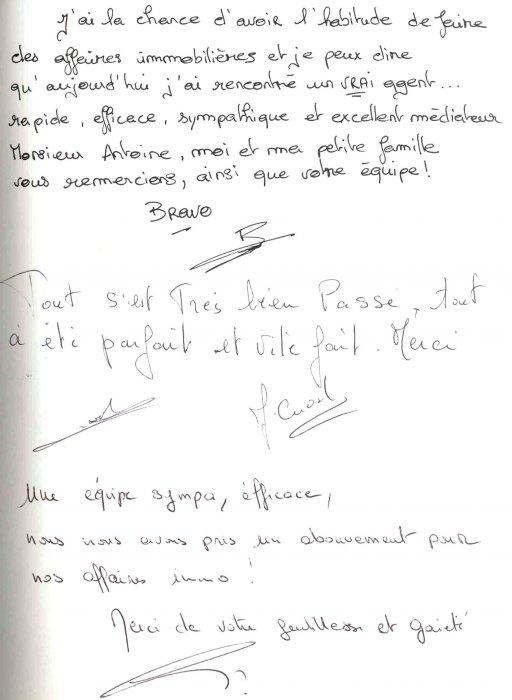 J'ai la chance d'avoir l'habitude de faire
des affaires immobilières et je peux dire
qu'aujourd'hui j'ai rencontré un VRAI agent...
rapide, efficace, sympathique et excellent médiateur
Monsieur Antoine, moi et ma petite famille
vous remercions, ainsi que votre équipe!
BRAVO
Tout s'est Très bien Passé, tout
à été parfait et vite fait. Merci
Une équipe sympa, éfficace,
nous nous avons pris un abonnement pour
nos affaires immo!
Merci de votre gentillesse et gaieté